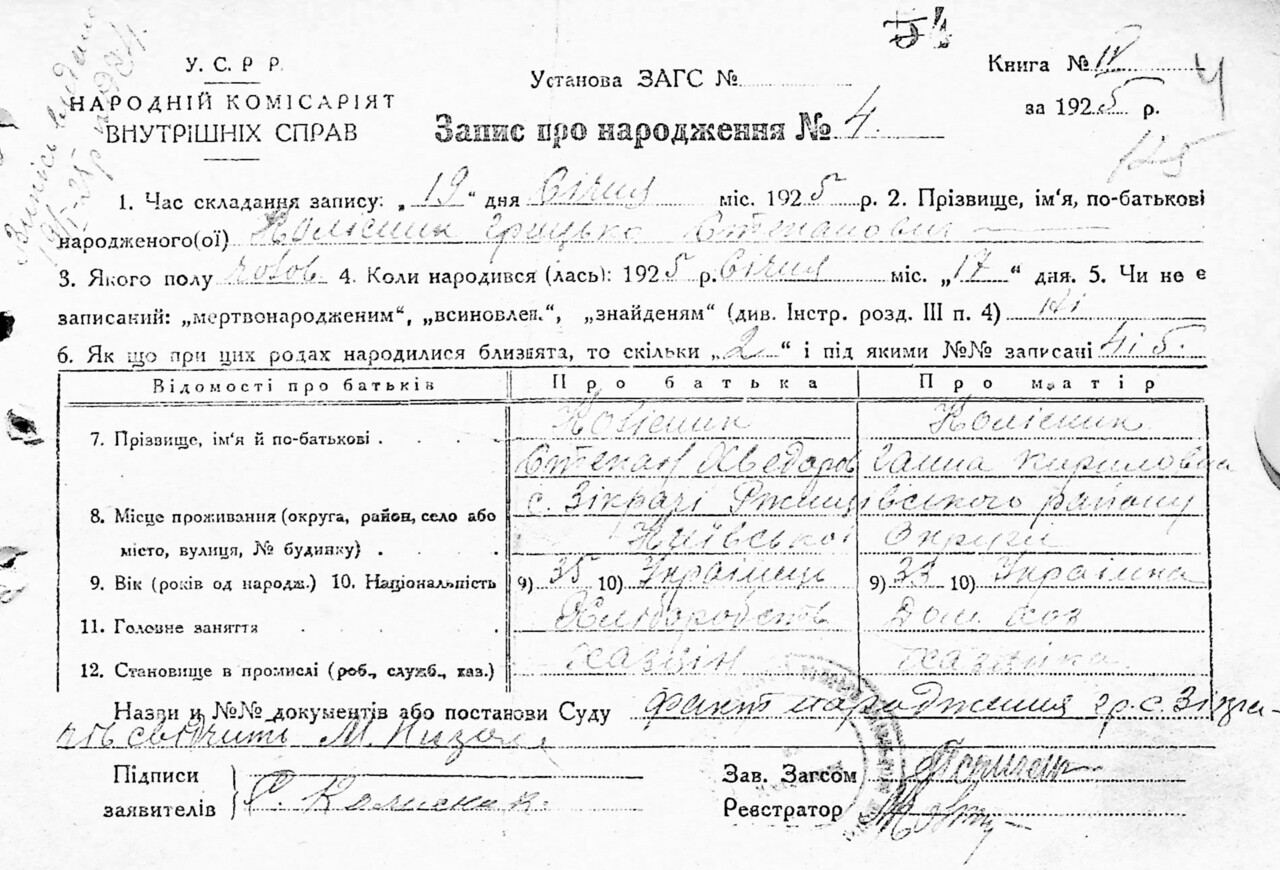 54
У. С. Р Р.
НАРОДНІЙ КОМІСАРІЯТ
ВНУТРІШНІХ СПРАВ
Установа ЗАГС №
Книга № IV
за 1925 р.
4
Запис про народження № 4.
125
1. Час складання запису: „19“ дня Січня міс. 1925 р. 2. Прізвище, ім'я, по-батькові
народженого(ої) Колісник Грицько Степанович
3. Якого полу чолов. 4. Коли народився (лась): 1925 р. Січня міс. „17“ дня. 5. Чи не є
записаний: „мертвонародженим“, „всиновлен.“, „знайденям“ (див. Інстр. розд. III п. 4) ні
6. Як що при цих родах народилися близнята, то скільки „2“ і під якими №№ записані 4 і 5.
Відомості про батьків Про батька Про матір
7. Прізвище, ім'я й по-батькові Колісник Колісник
Степан Хведоров Ганна Кириловна
8. Місце проживання (округа, район, село або с. Зікрачі Ржищівського району
місто, вулиця, № будинку) Київської Округи
9. Вік (років од народж.) 10. Національність 9) 35 10) Українець 9) 33 10) Українка
11. Головне заняття Хліборобств Дом. хоз
12. Становище в промислі (роб., служб., хаз.) хазяїн хазяйка
Назви и №№ документів або постанови Суду факт народження гр. с. Зікра-
чів свідчить М.
Підписи
заявителів
С. Колисник.
Зав. Загсом
Реєстратор